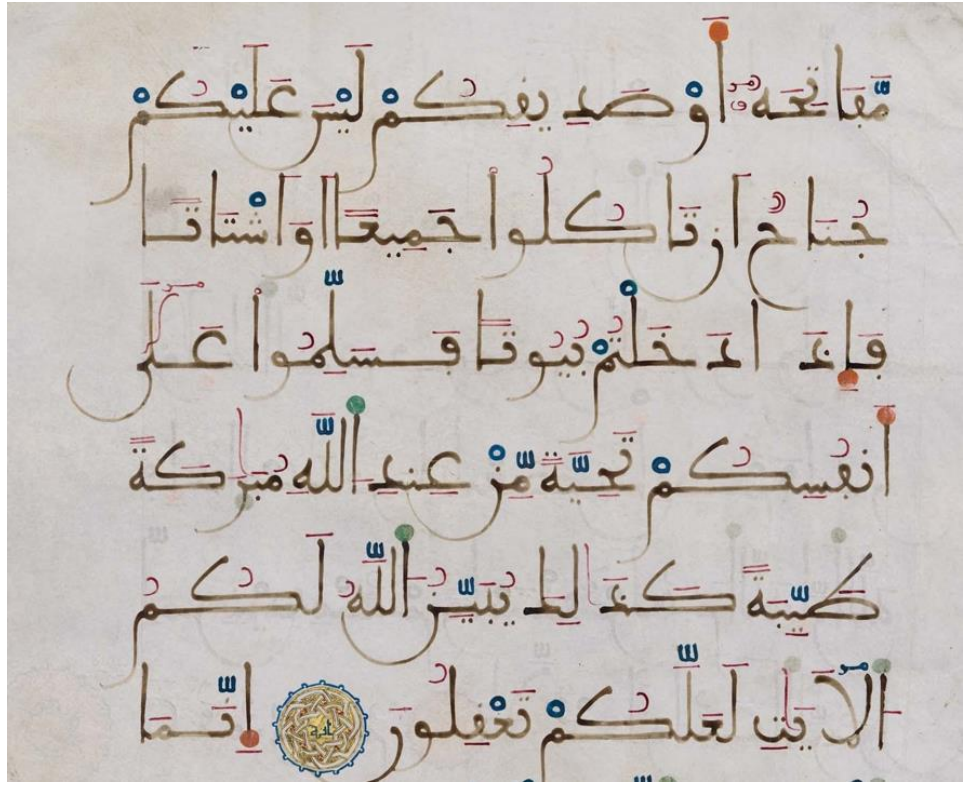 مَّفَاتِحَهُ أَوْ صَدِيقِكُمْ لَيْسَ عَلَيْكُمْ
جُنَاحٌ أَن تَاكُلُوا جَمِيعًا اَوَ اشْتَاتًا
فَإِذَا دَخَلْتُم بُيُوتًا فَسَلِّمُوا عَلَىٰ
أَنفُسِكُمْ تَحِيَّةً مِّنْ عِندِ اللَّهِ مُبَٰرَكَةً
طَيِّبَةً كَذَٰلِكَ يُبَيِّنُ اللَّهُ لَكُمُ
الَايَٰتِ لَعَلَّكُمْ تَعْقِلُونَ إِنَّمَا